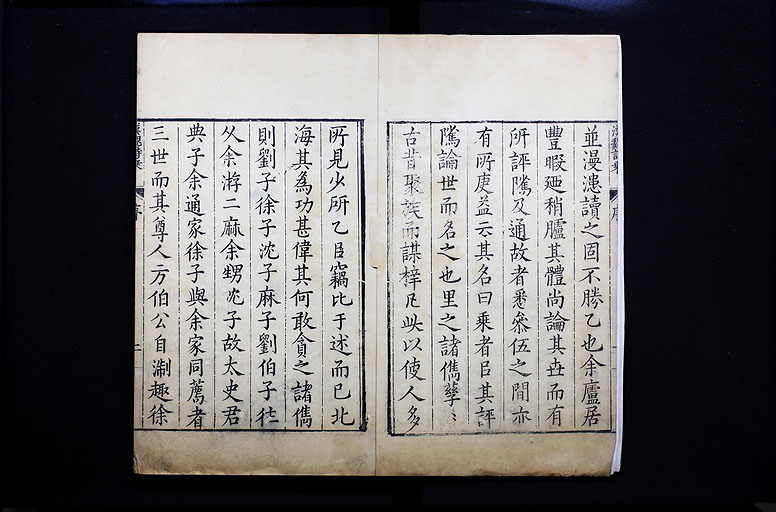 並漫漶讀之固不勝乙也余廬居
豐暇廼稍臚其體尚論其世而有
所評隲及通故者悉叅伍之間亦
有所庚益云其名曰乘者㠯其評
隲論世而名之也里之諸儁孳〻
古昔聚族而謀梓㠯此以使人多
所見少所乙㠯竊比于述而已北
海其為功甚偉其何敢貪之諸儁
則劉子徐子沈子麻子劉伯子徃
从余游二麻余甥沈子故太史君
典子余通家徐子與余家同薦者
三世而其尊人方伯公自淛趣徐
序
序
二